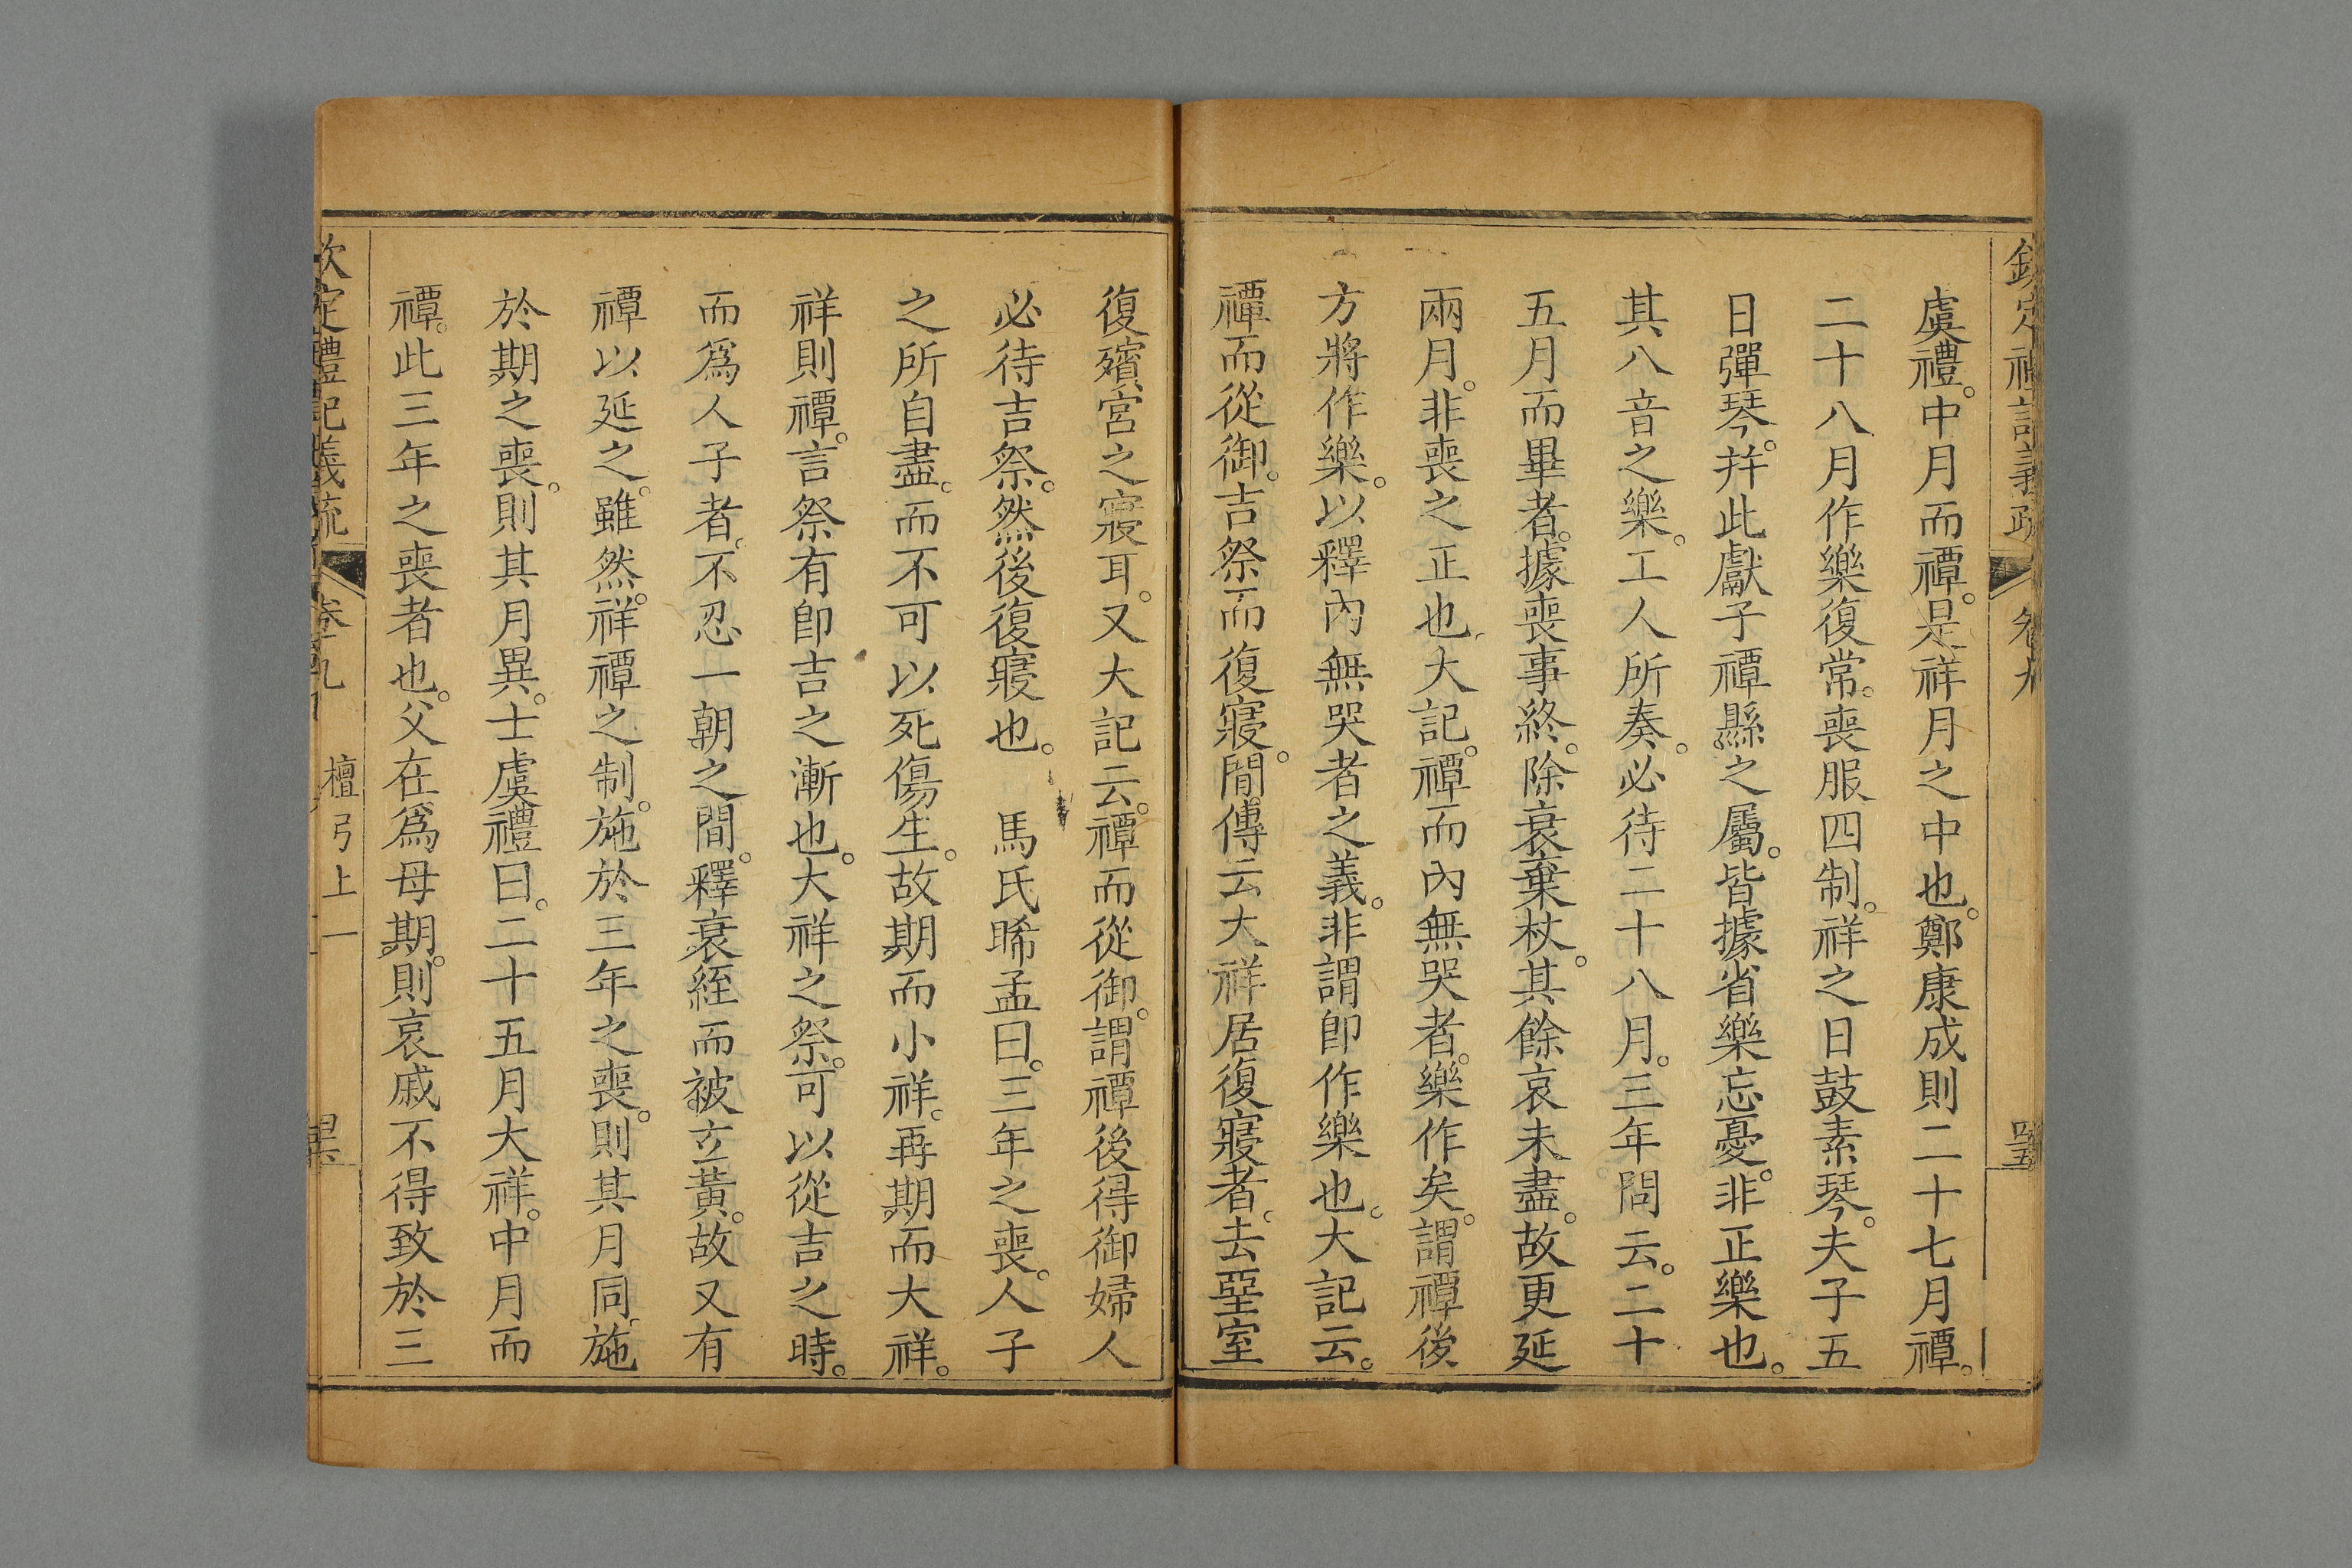 欽定禮記義疏 卷九
虞禮。中月而禫。是祥月之中也。鄭康成則二十七月禫。
二十八月作樂復常。喪服四制。祥之日鼓素琴。夫子五
日彈琴。幷此獻子禫縣之屬。皆據省樂忘憂。非正樂也。
其八音之樂。工人所奏。必待二十八月。三年問云。二十
五月而畢者。據喪事終。除衰棄杖。其餘哀未盡。故更延
兩月。非喪之正也。大記。禫而內無哭者。樂作矣。謂禫後
方將作樂。以釋內無哭者之義。非謂卽作樂也。大記云。
禫而從御。吉祭而復寢。閒傳云大祥居復寢者。去堊室
復殯宮之寢耳。又大記云。禫而從御。謂禫後得御婦人
必待吉祭。然後復寢也。 馬氏晞孟曰。三年之喪。人子
之所自盡。而不可以死傷生。故期而小祥。再期而大祥。
祥則禫。言祭有卽吉之漸也。大祥之祭。可以從吉之時。
而爲人子者。不忍一朝之間。釋衰絰而被玄黃。故又有
禫以延之。雖然。祥禫之制。施於三年之喪。則其月同。施
於期之喪。則其月異。士虞禮曰。二十五月大祥。中月而
禫。此三年之喪者也。父在爲母期。則哀戚不得致於三
欽定禮記義疏 卷九 檀弓上一